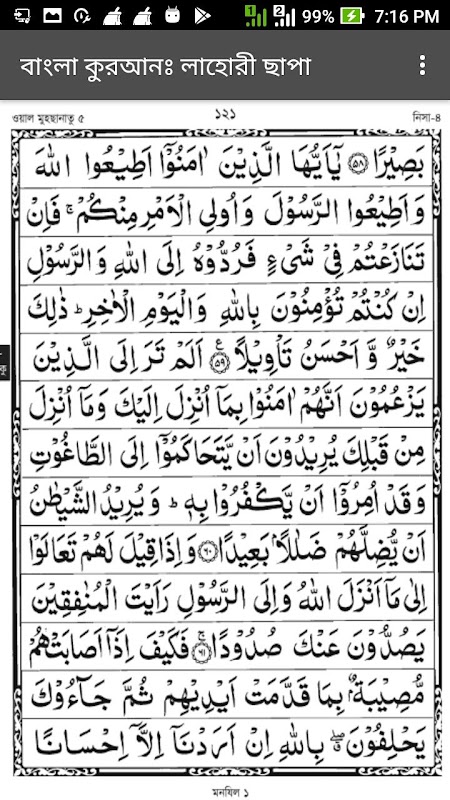 99% 7:16 PM
বাংলা কুরআনঃ লাহোরী ছাপা
ওয়াল মুহছানাতু ৫ ১২১ নিসা-৪
بَصِيْرًا ۝۵۸ يٰۤاَيُّهَا الَّذِيْنَ اٰمَنُوْۤا اَطِيْعُوا اللّٰهَ
وَاَطِيْعُوا الرَّسُوْلَ وَاُولِي الْاَمْرِ مِنْكُمْ ۚ فَاِنْ
تَنَازَعْتُمْ فِيْ شَيْءٍ فَرُدُّوْهُ اِلَى اللّٰهِ وَالرَّسُوْلِ
اِنْ كُنْتُمْ تُؤْمِنُوْنَ بِاللّٰهِ وَالْيَوْمِ الْاٰخِرِ ؕ ذٰلِكَ
خَيْرٌ وَّ اَحْسَنُ تَاْوِيْلًا ۝۵۹ع اَلَمْ تَرَ اِلَى الَّذِيْنَ
يَزْعُمُوْنَ اَنَّهُمْ اٰمَنُوْا بِمَاۤ اُنْزِلَ اِلَيْكَ وَمَاۤ اُنْزِلَ
مِنْ قَبْلِكَ يُرِيْدُوْنَ اَنْ يَّتَحَاكَمُوْۤا اِلَى الطَّاغُوْتِ
وَقَدْ اُمِرُوْۤا اَنْ يَّكْفُرُوْا بِهٖ ؕ وَيُرِيْدُ الشَّيْطٰنُ
اَنْ يُّضِلَّهُمْ ضَلٰلًاۢ بَعِيْدًا ۝۶۰ وَاِذَا قِيْلَ لَهُمْ تَعَالَوْا
اِلٰى مَاۤ اَنْزَلَ اللّٰهُ وَاِلَى الرَّسُوْلِ رَاَيْتَ الْمُنٰفِقِيْنَ
يَصُدُّوْنَ عَنْكَ صُدُوْدًا ۝۶۱ۚ فَكَيْفَ اِذَاۤ اَصَابَتْهُمْ
مُّصِيْبَةٌۢ بِمَا قَدَّمَتْ اَيْدِيْهِمْ ثُمَّ جَآءُوْكَ
يَحْلِفُوْنَ ۖۗ بِاللّٰهِ اِنْ اَرَدْنَاۤ اِلَّاۤ اِحْسَانًا
মনযিল ১